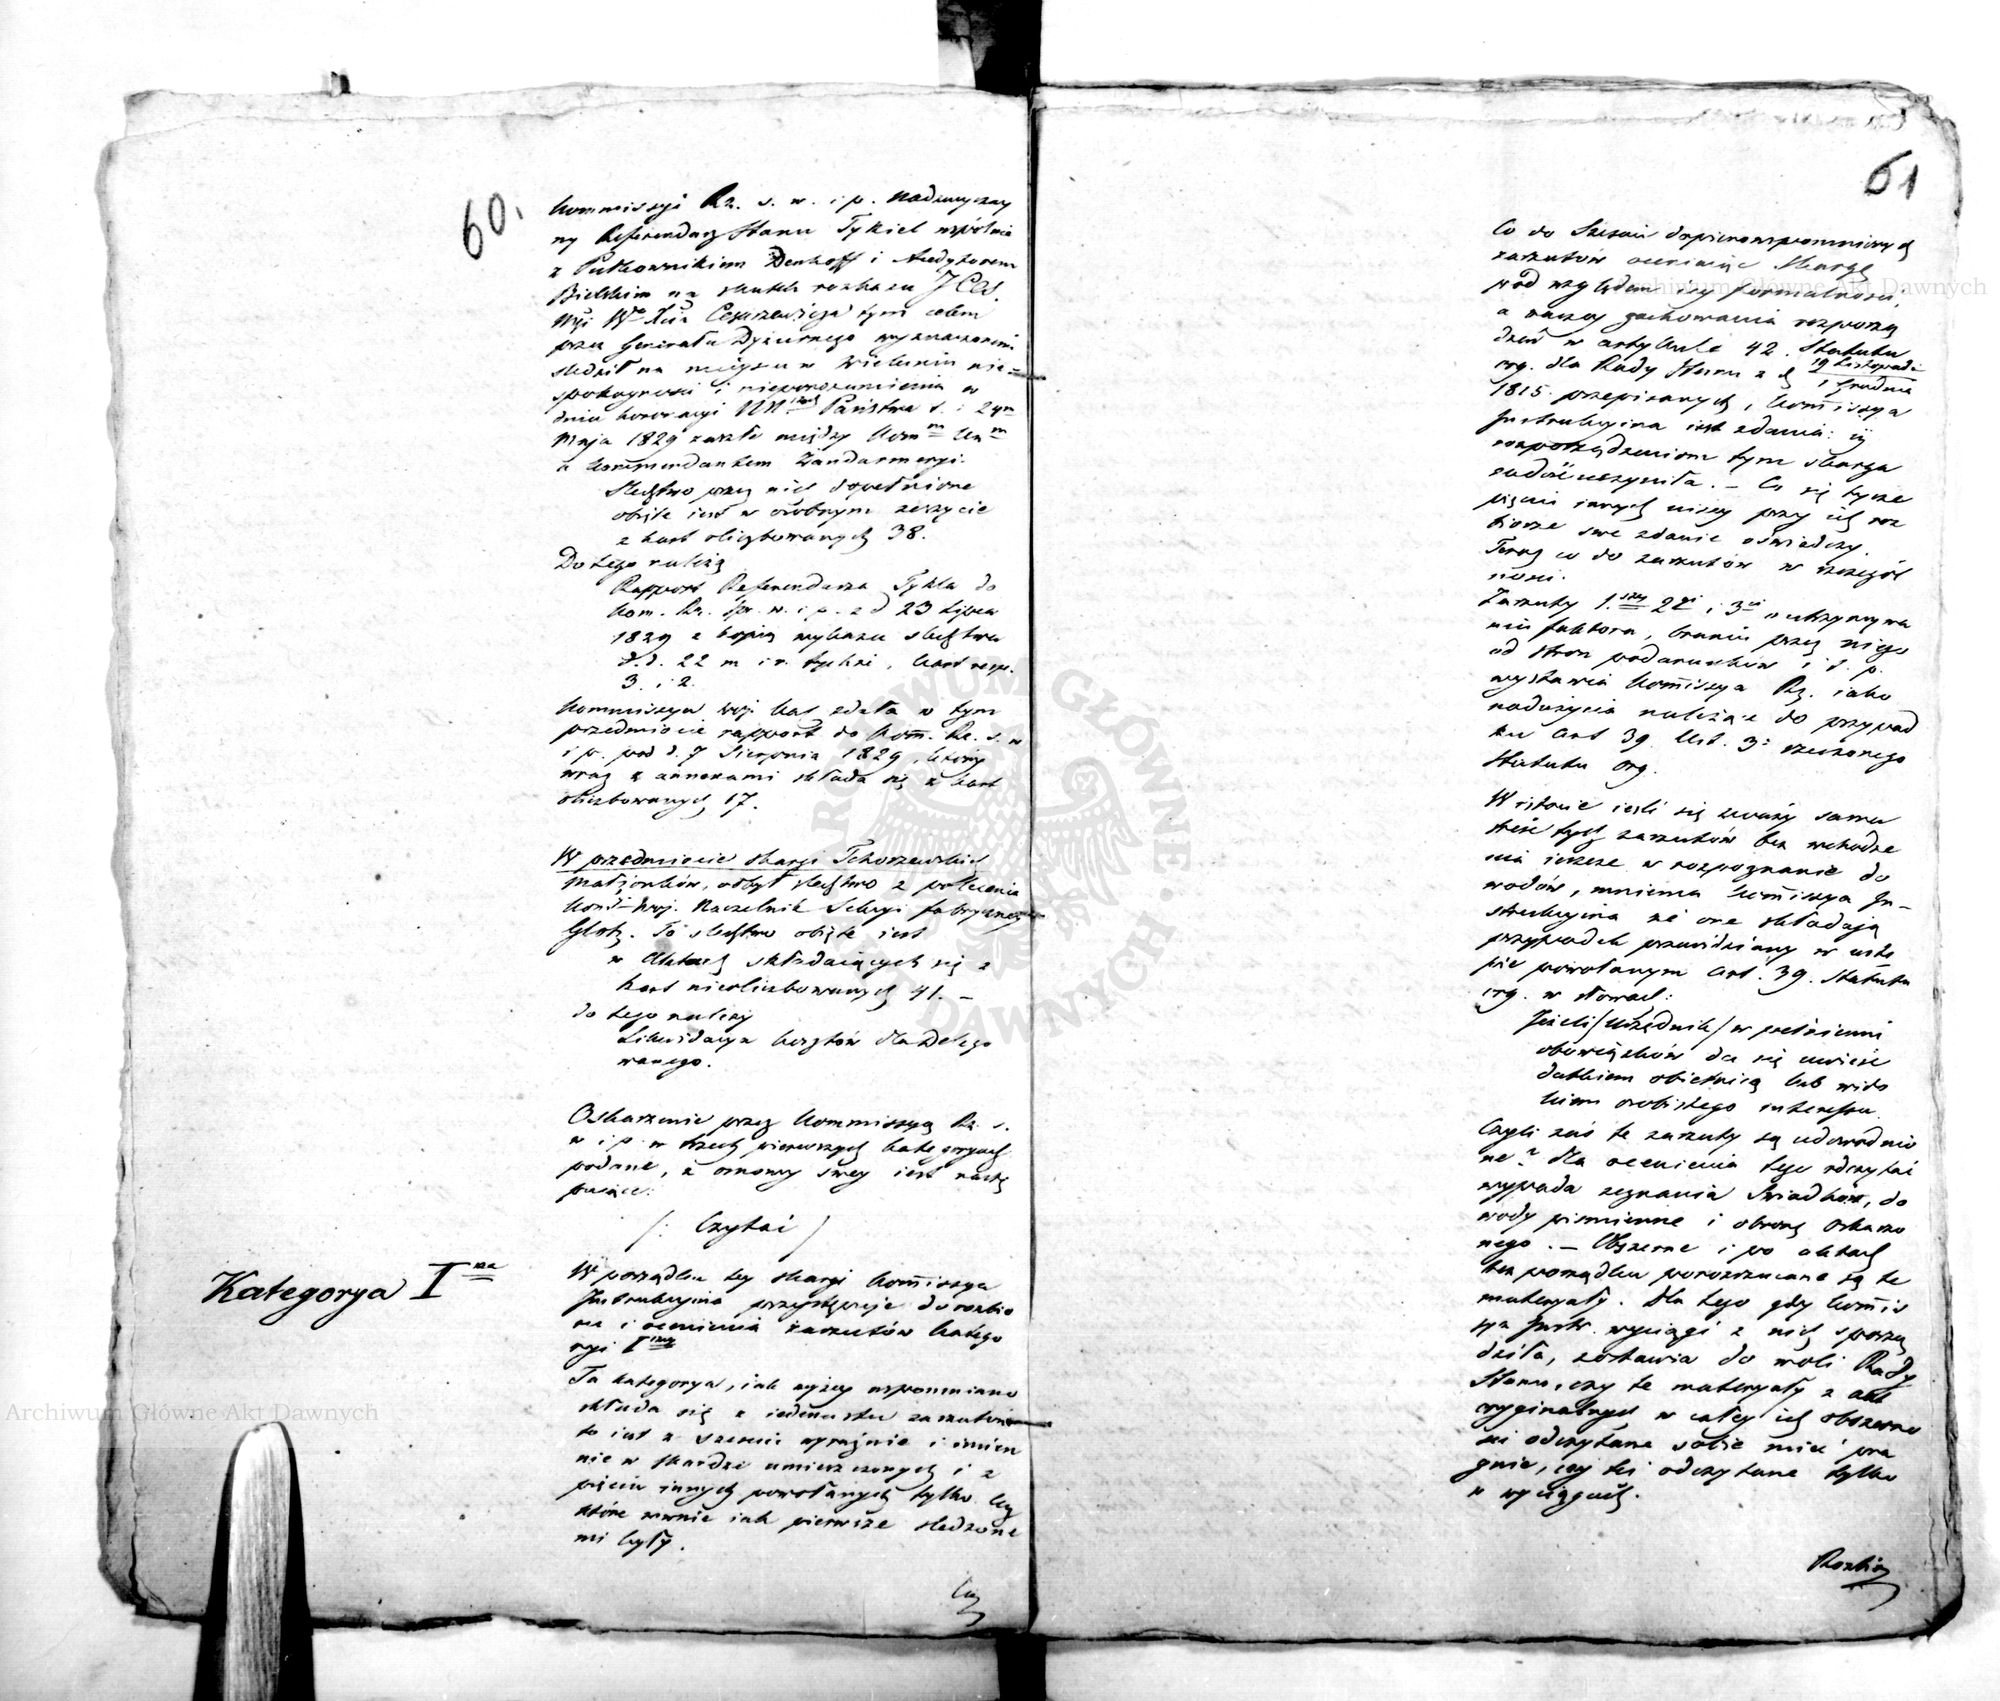 60.
Kommissyi Rz. s. w. i p. Nadzwyczay
ny Referendarz Stanu Tykiel wspólnie
z Pułkownikiem Denhoff i Audytorem
Bielskim na skutek rozkazu J Ces.
Mści Wo Xcia Cesarzewicza tym celem
przez Generała Dyżurnego wyznaczonemi
śledził na mieyscu w Wieluniu nie-
spokoyności i nieporozumienia w
dniu koronacyi NN Państwa t. i. 24m
Maja 1829 zaszłe między Komm
a kommendantem Żandarmeryi.
Śledztwo przez nich dopełnione
objęte iest w osobnym zeszycie
z kart oliczbowanych 38.
Do tego należą
Rapport Referendarza Tykla do
Kom. Rz. spr. w. i p. z d 23 Lipca
1829 z kopią wykazu śledztwa
d.d. 22 m i r. tychże, kart resp.
3. i 2.
Kommissya woj. Kal zdała w tym
przedmiocie rapport do Kom. Rz. s. w
i p. pod d. 7 Sierpnia 1829, który
wraz z annexami składa się z kart
oliczbowanych 17.
W przedmiocie skargi Tchorzewskich
małżonków, odbył śledztwo z polecenia
Kom Woj. Naczelnik Sekcyi fabryczney
Glotz. To śledztwo objęte iest
w Aktach składaiących się z
kart nieoliczbowanych 41. –
do tego należy
Likwidacya kosztów dla Delego
wanego.
Oskarżenie przez Kommissyą Rz. s.
w i p. w trzech pierwszych kategoryach
podane, z osnowy swey iest nastę
puiące:
/: Czytać /
Kategorya Isza
W porządku tey skargi Kommissya
Instrukcyina przystępuje do rozbio
ru i ocenienia zarzutów katego
ryi I
Ta kategorya, iak wyżey wspomniano
składa się z iedenastu zarzutów
to iest z sześciu wyraźnie i imien
nie w skardze umieszczonych i z
pięciu innych powołanych tylko lecz
które równie iak pierwsze śledzone
mi były.
Co
61
Co do Sześciu dopierowspomnionych
zarzutów oceniaiąc Skargę
pod względem iey formalności,
a raczey zachowania rozporzą
dzeń w artykule 42. Statutu
org. dla Rady Stanu z d 19 Listopada
1 Grudnia
1815. przepisanych, Kommissya
Instrukcyina iest zdania: iż
rozporządzeniom tym skarga
zadość uczyniła. – Co się tycze
pięciu innych niżey przy ich roz
biorze swe zdanie oświadczy.
Teraz co do zarzutów w szczegól
ności.
Zarzuty 1.szy 2gi i 3ci „utrzymywa
nie faktora, branie przez niego
od stron podarunków i t. p.
wystawia Kommissya Rz. iako
nadużycia należące do przypad
ku Art 39. Ust. 3: rzeczonego
Statutu org.
W istocie ieśli się zważy samą
treść tych zarzutów bez wchodze
nia ieszcze w rozpoznanie do
wodów, mniema Kommissya In-
strukcyina że one składaią
przypadek przewidziany w ustę
pie powołanym Art. 39. Statutu
org. w słowach:
Jeżeli /Urzędnik/ w pełnieniu
obowiązków da się uwieść
datkiem obietnicą lub wido
kiem osobistego interessu.
Czyli zaś te zarzuty są udowodnio
ne? dla ocenienia tego odczytać
wypada zeznania Świadków, do
wody piśmienne i obronę Oskarżo
nego. – Obszerne i po aktach
bez porządku porozrzucane są te
materyały. Dla tego gdy Kommis
sya Instr. wyciągi z nich sporzą
dziła, zostawia do woli Rady
Stanu, czy te materyały z akt
oryginalnych w całey ich obszerno
ści odczytane sobie mieć pra
gnie, czy też odczytane tylko
w wyciągach.
Rozbiór
Archiwum Główne Akt Dawnych
Archiwum Główne Akt Dawnych
ARCHIWUM GŁÓWNE · AKT DAWNYCH ·